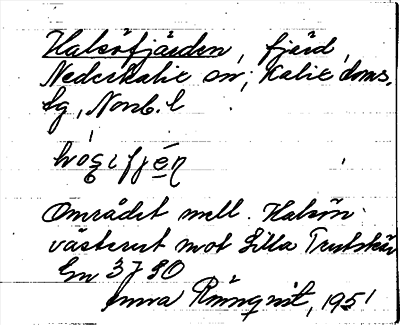 Halsöfjärden, fjärd,
Nederkalix sn, Kalix doms.
lg, Norrb. l
Området mell. Halsön
västerut mot Lilla Trutskär
En 3780
Anna Rönnqvist, 1951